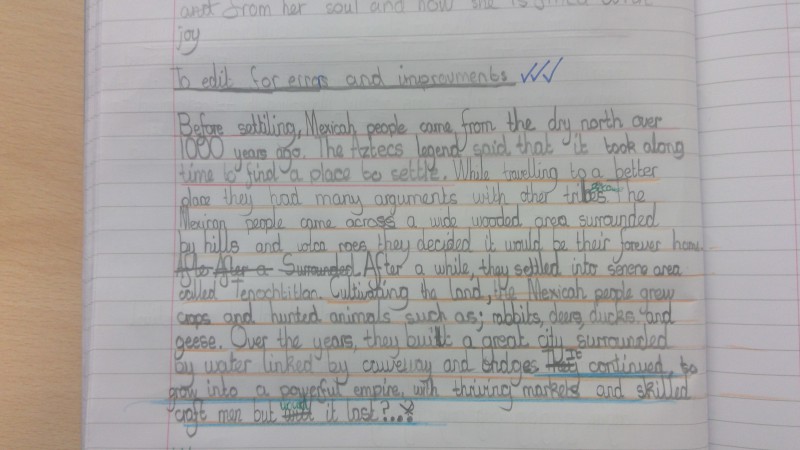 and from her soul and how she is
joy
To edit for erros and improvments
Before settiling, Mexicah people came from the dry north over
1000 years ago. The Aztecs legend said that it took along
time to find a place to settle. While travelling to a better
place they had many arguments with other tribes The
Mexican people came across a wide wooded area surrounded
by hills and volca noes, they decided it would be their forever home
After After a Surrounded After a while, they settled into serene area
called Tenochtitlan. Cultivating the land, the Mexicah people grew
crops and hunted animals such as; rabbits, deers, ducks and
geese. Over the years, they built a great city surrounded
by water linked by causeway and bridges It continued, to
grow into a powerful empire, with thriving markets and skilled
craft men but would it last?...